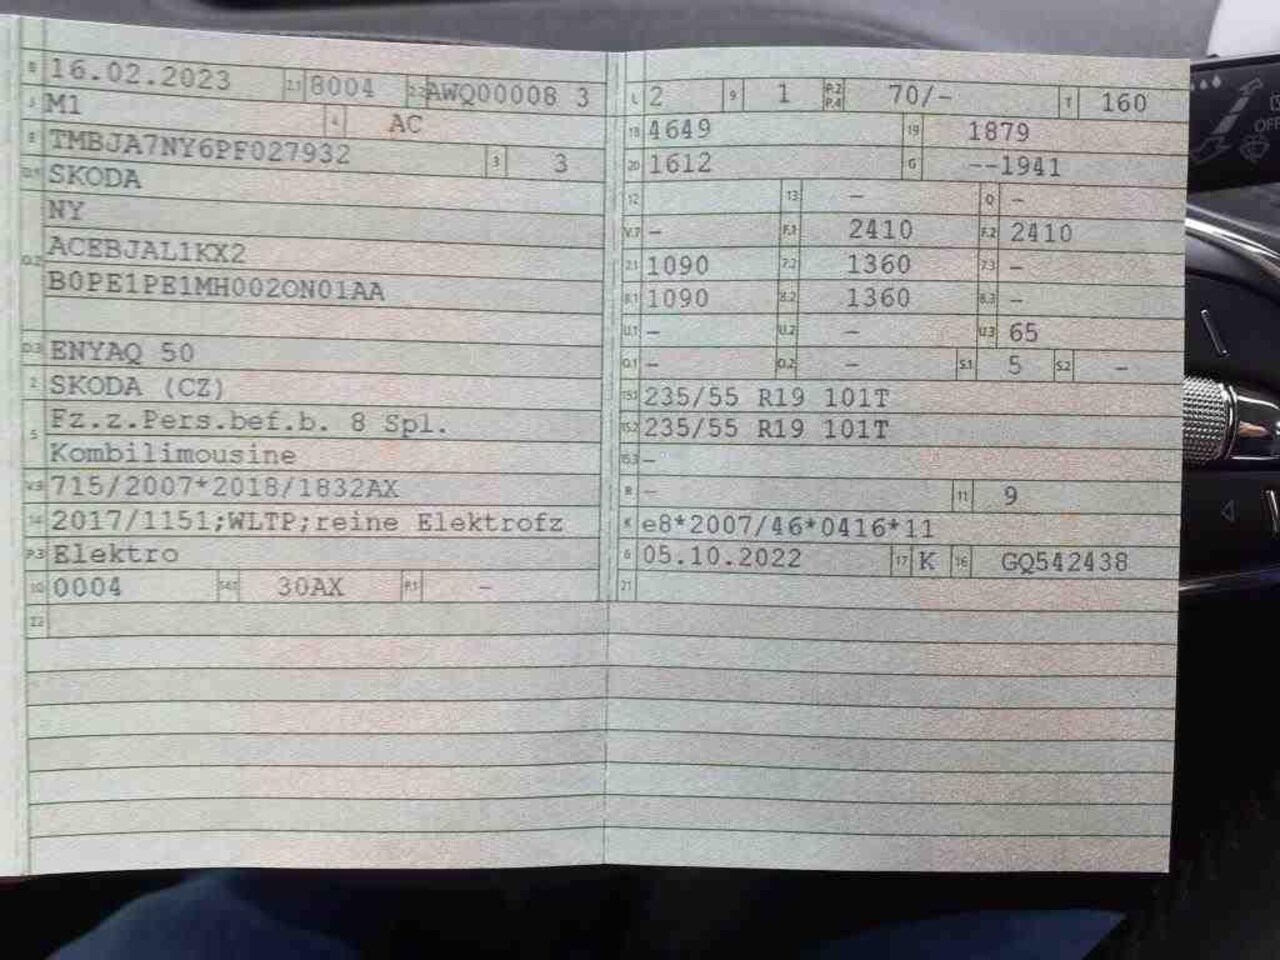 B 16.02.2023 2.1 8004 2.2 AWQ00008 3
J M1 4 AC
E TMBJA7NY6PF027932 3 3
D.1 SKODA
NY
D.2 ACEBJAL1KX2
B0PE1PE1MH002ON01AA
D.3 ENYAQ 50
2 SKODA (CZ)
5 Fz.z.Pers.bef.b. 8 Spl.
Kombilimousine
V.9 715/2007*2018/1832AX
14 2017/1151;WLTP;reine Elektrofz
P.3 Elektro
10 0004 14.1 30AX P.1 -
22
L 2 9 1 P.2 P.4 70/- T 160
18 4649 19 1879
20 1612 G --1941
12 13 - Q -
V.7 - F.1 2410 F.2 2410
7.1 1090 7.2 1360 7.3 -
8.1 1090 8.2 1360 8.3 -
U.1 - U.2 - U.3 65
O.1 - O.2 - S.1 5 S.2 -
15.1 235/55 R19 101T
15.2 235/55 R19 101T
15.3 -
R - 11 9
K e8*2007/46*0416*11
6 05.10.2022 17 K 16 GQ542438
21
OFF